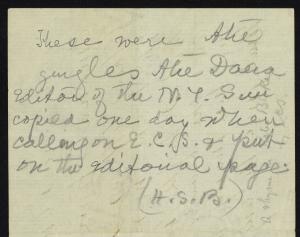 These were the
gingles the Dana
Editor of the N.Y. Sun
copied one day when
calling on E.C.S. & put
on the editorial page.
(H.S.B.)